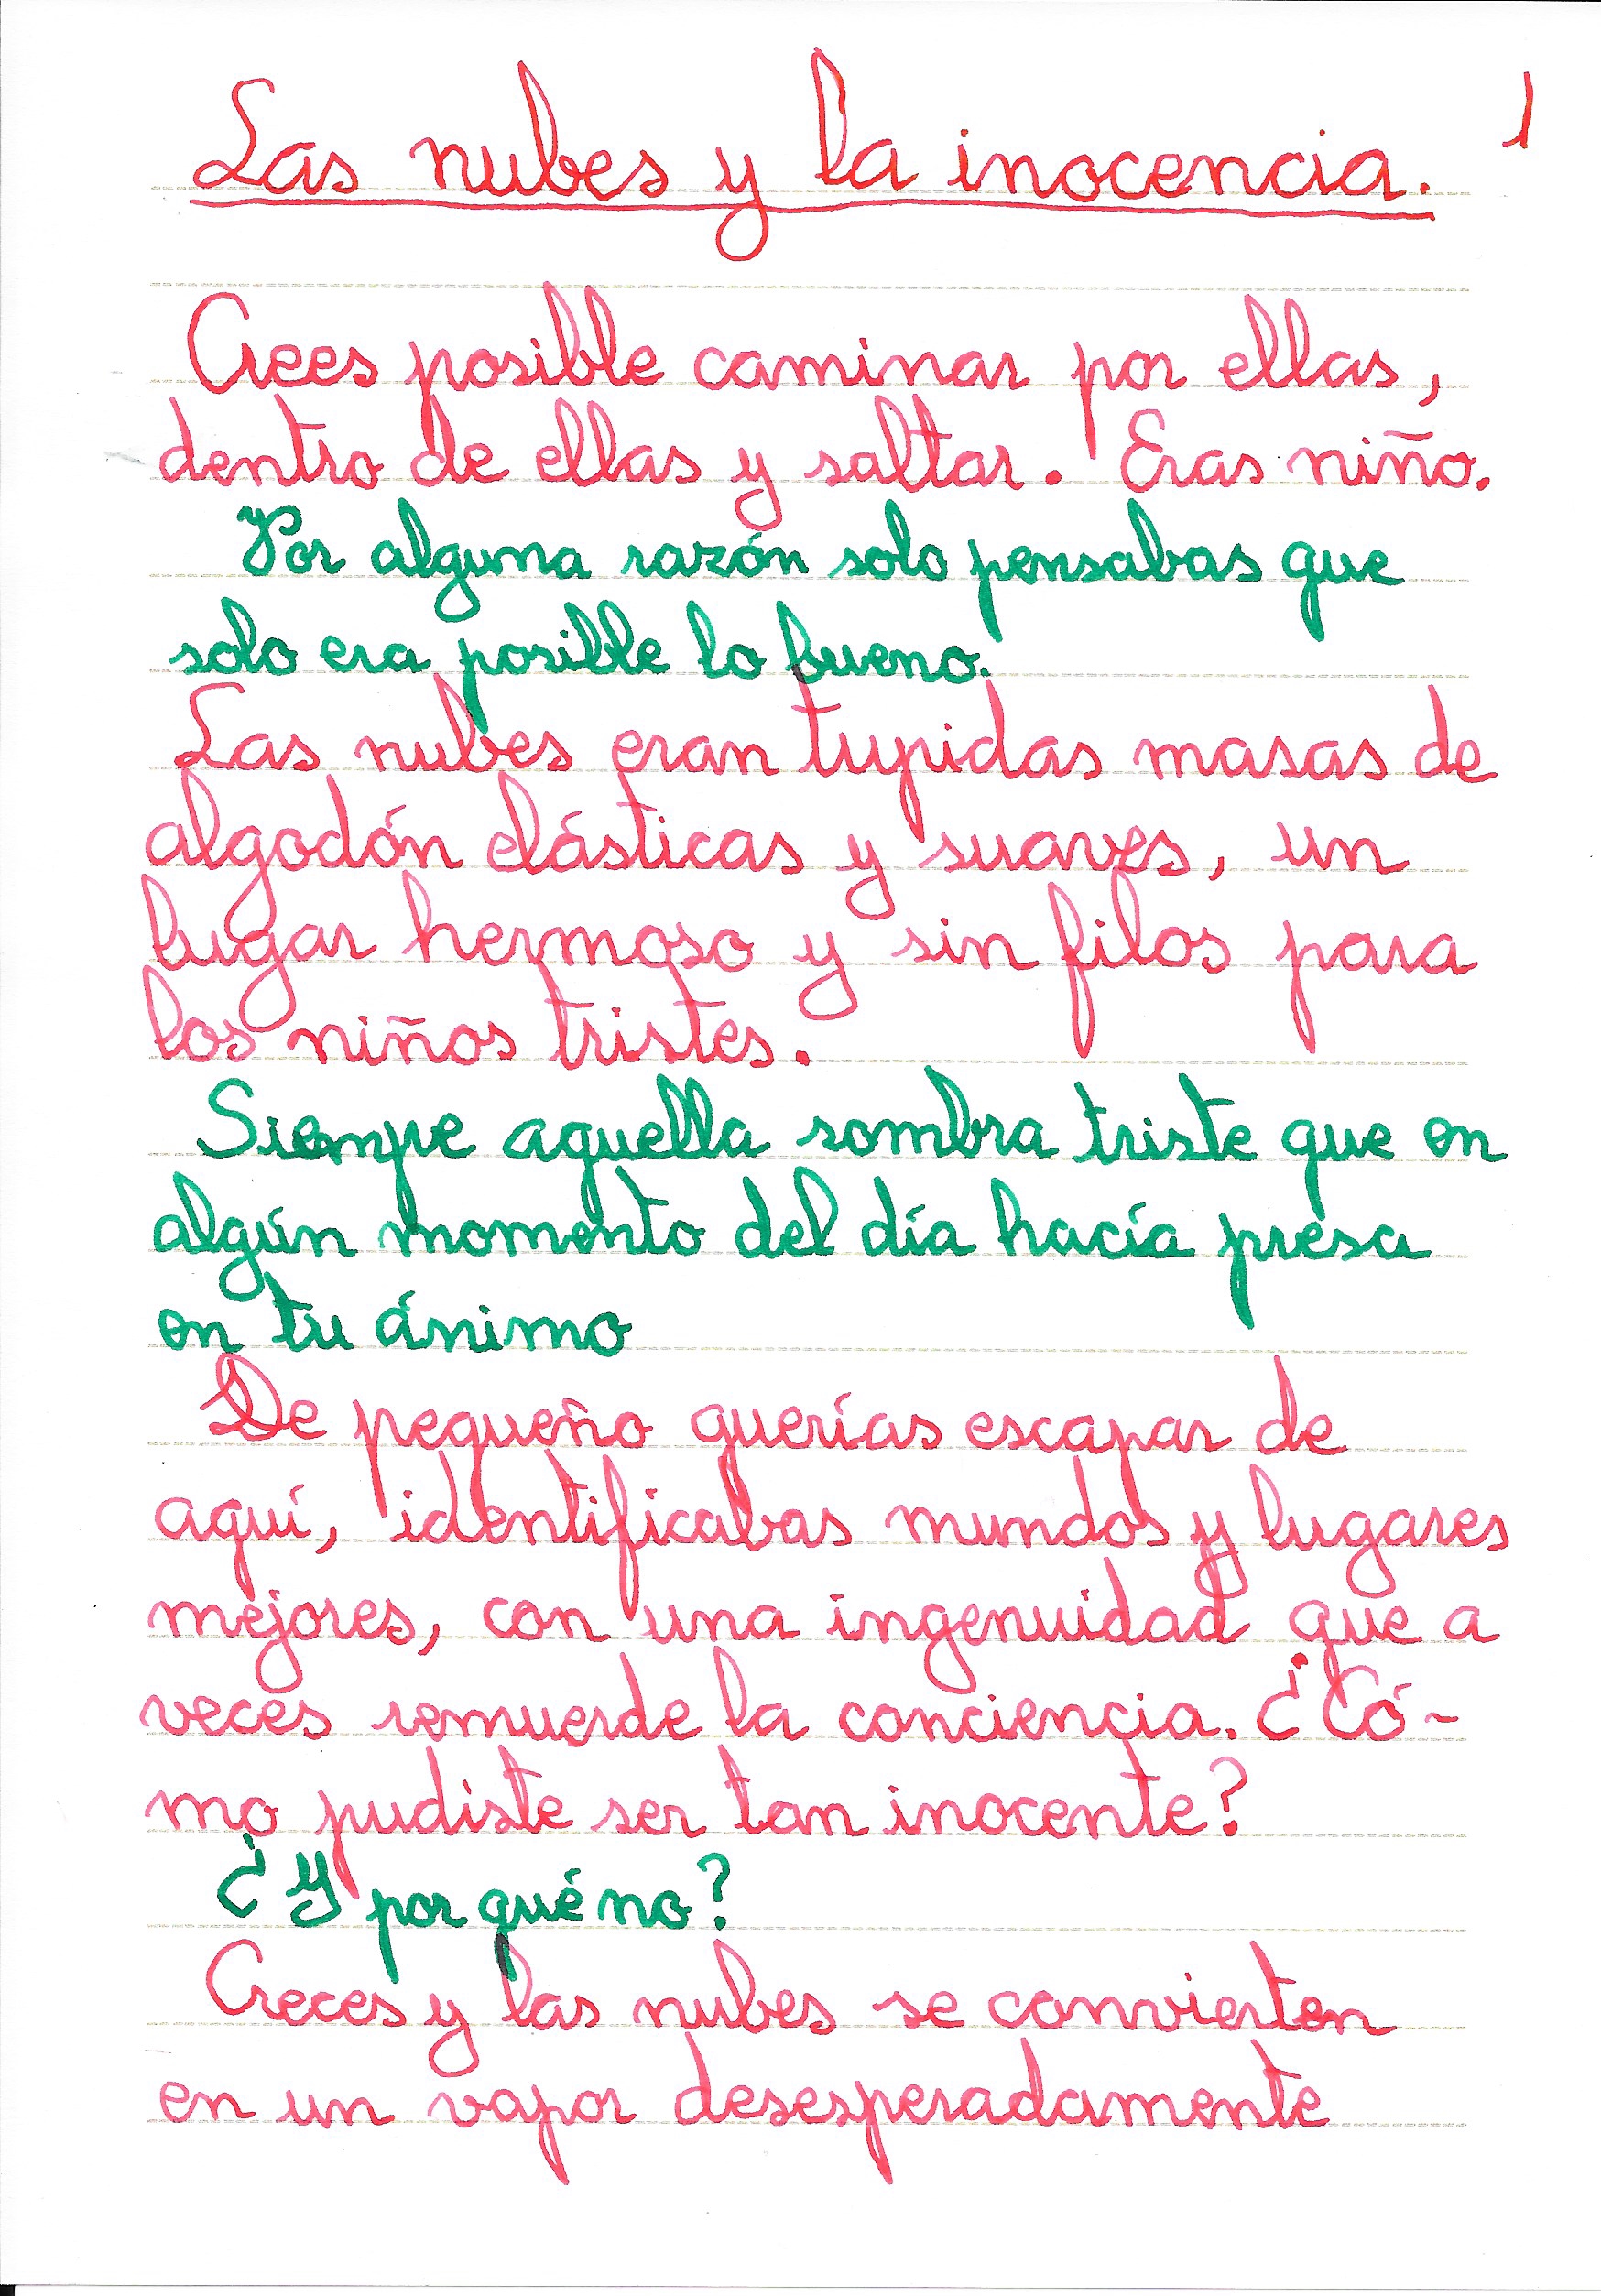 Las nubes y la inocencia.
1
Crees posible caminar por ellas,
dentro de ellas y saltar. Eras niño.
Por alguna razón solo pensabas que
solo era posible lo bueno.
Las nubes eran tupidas masas de
algodón elásticas y suaves, un
lugar hermoso y sin filos para
los niños tristes.
Siempre aquella sombra triste que en
algún momento del día hacía presa
en tu ánimo
De pequeño querías escapar de
aquí, identificabas mundos y lugares
mejores, con una ingenuidad que a
veces remuerde la conciencia. ¿Có-
mo pudiste ser tan inocente?
¿Y por qué no?
Creces y las nubes se convierten
en un vapor desesperadamente